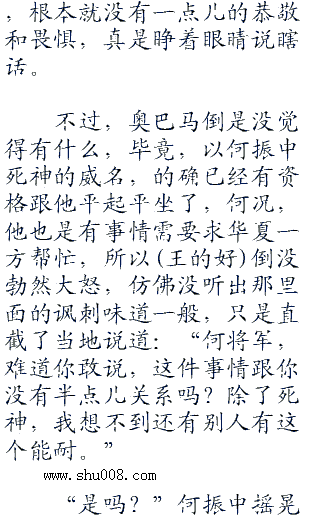 ，根本就没有一点儿的恭敬
和畏惧，真是睁着眼睛说瞎
话。
不过，奥巴马倒是没觉
得有什么，毕竟，以何振中
死神的威名，的确已经有资
格跟他平起平坐了，何况，
他也是有事情需要求华夏一
方帮忙，所以(王的好)倒没
勃然大怒，仿佛没听出那里
面的讽刺味道一般，只是直
截了当地说道：“何将军，
难道你敢说，这件事情跟你
没有半点儿关系吗？除了死
神，我想不到还有别人有这
个能耐。”
www.shu008.com
“是吗？”何振中摇晃